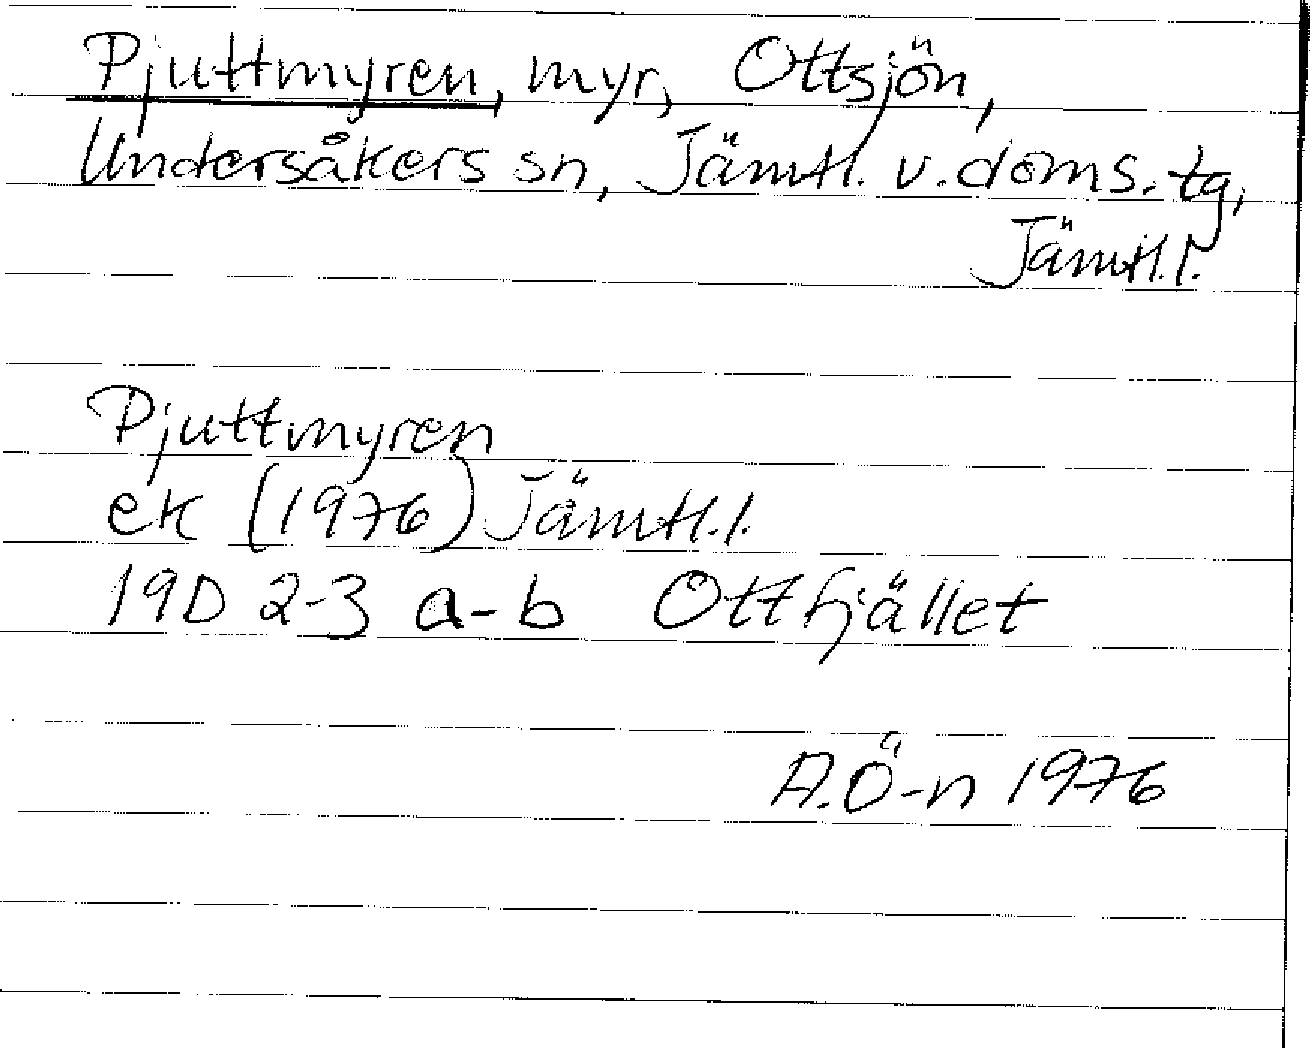 Pjuttmyren, myr, Ottsjön,
Undersåkers sn, Jämtl. v. doms. tg,
Jämtl. l.
Pjuttmyren
ek (1976) Jämtl. l.
19D 2-3 a-b Ottfjället
A.Ö-n 1976